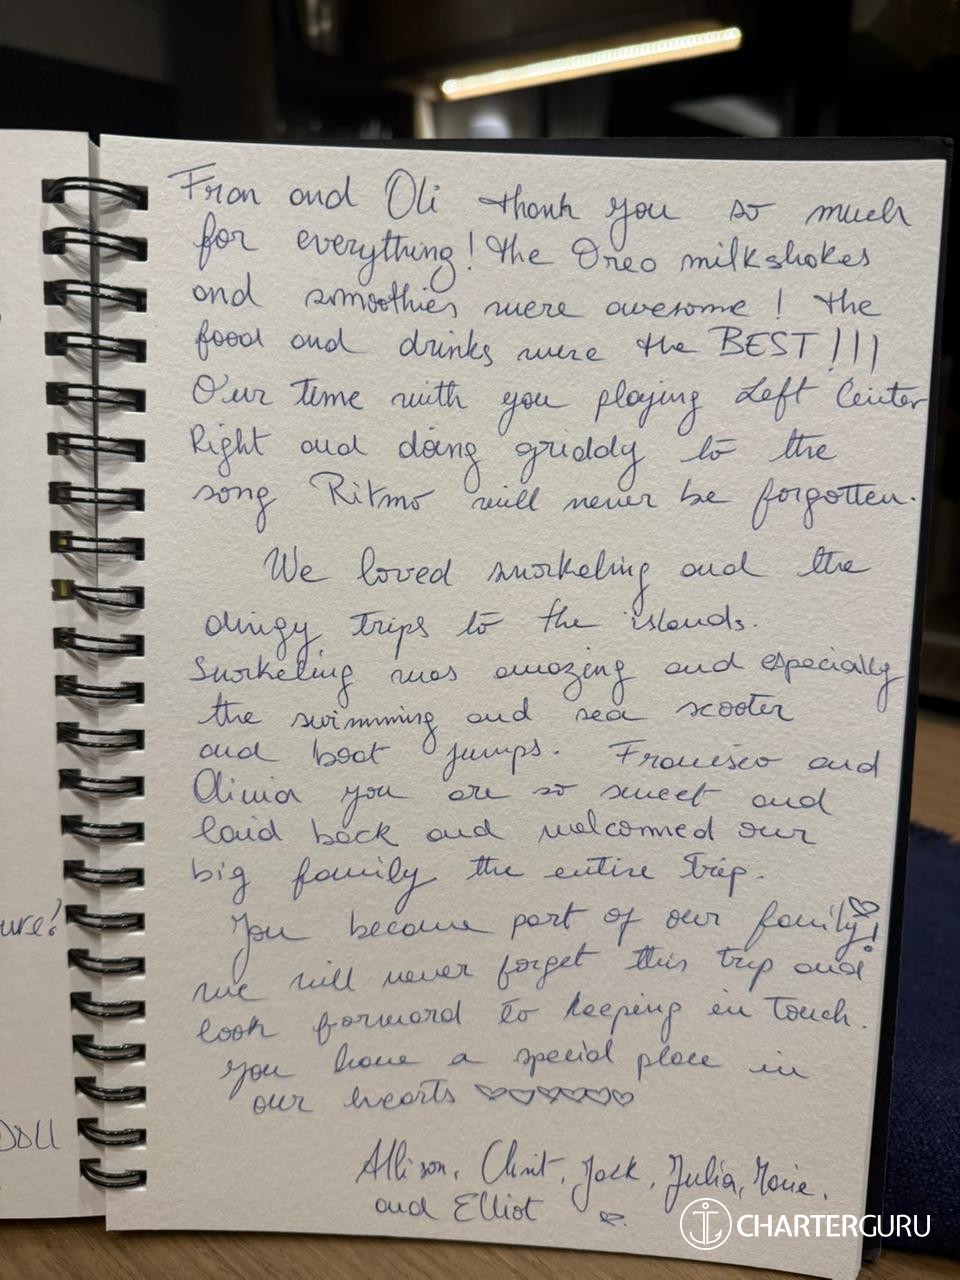 Fran and Oli thank you so much
for everything! the Oreo milkshakes
and smoothies were awesome! the
food and drinks were the BEST!!!
Our time with you playing Left Center
Right and doing griddy to the
song Ritmo will never be forgotten.
We loved snorkeling and the
dingy trips to the islands.
Snorkeling was amazing and especially
the swimming and sea scooter
and boat jumps. Francisco and
Olivia you are so sweet and
laid back and welcomed our
big family the entire trip.
You became part of our family!
we will never forget this trip and
look forward to keeping in touch.
you have a special place in
our hearts
Allison, Clint, Jack, Julia, Marie,
and Elliot
ure!
DOLL
CHARTERGURU